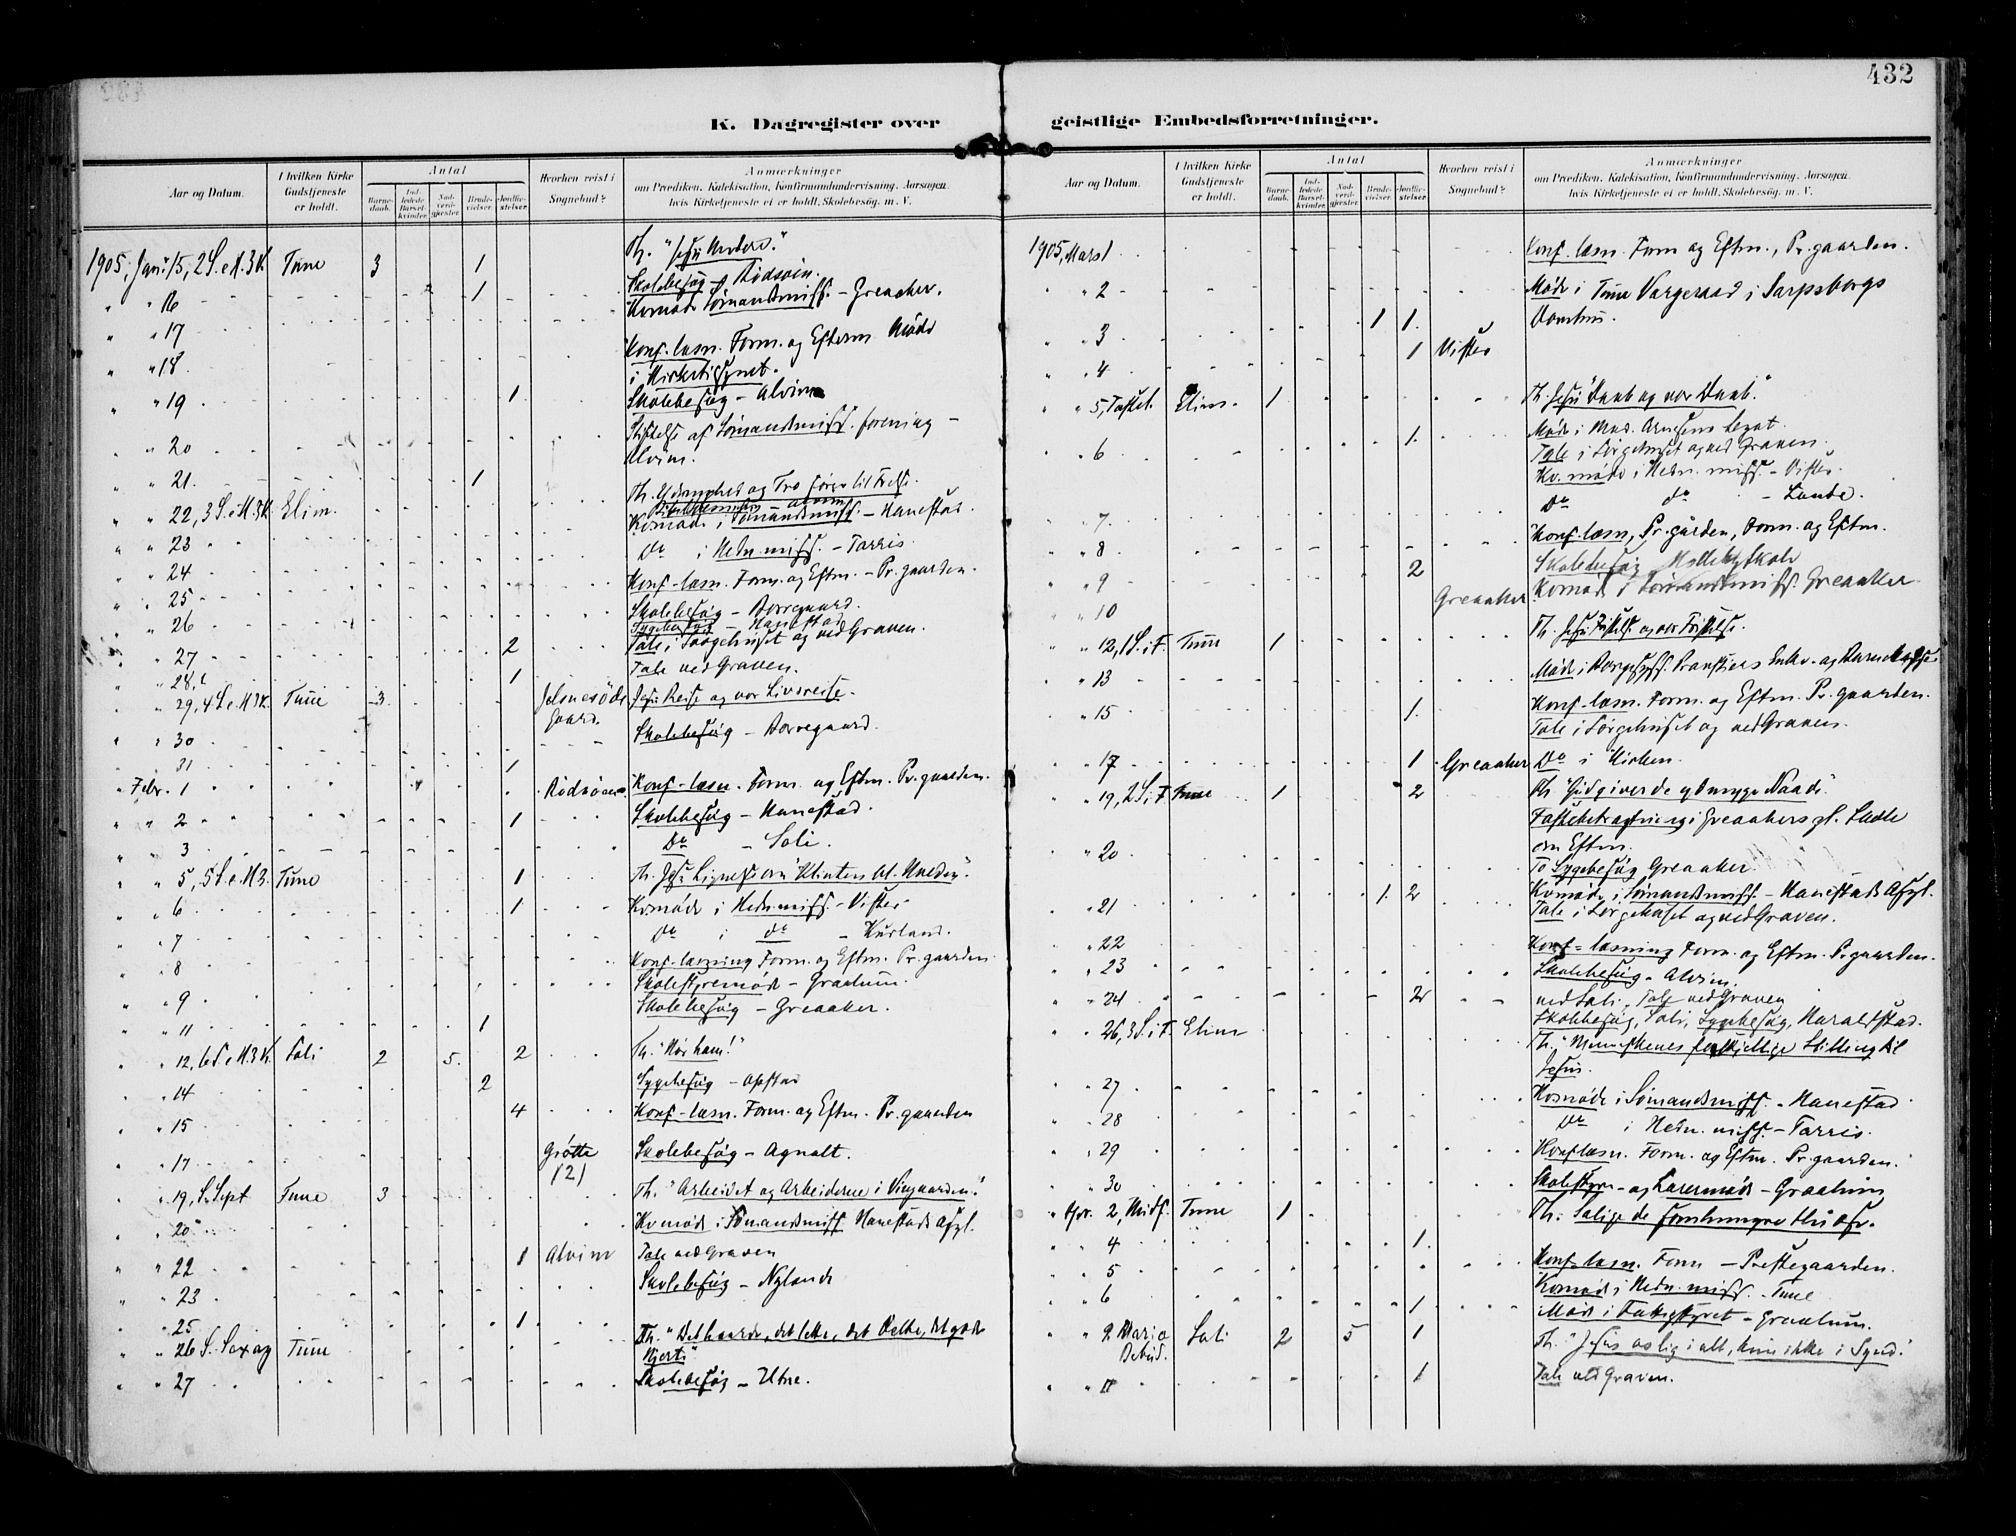 432
K. Dagregister over
geistlige Embedsforretninger.
Aar og Datum.
I hvilken Kirke Gudstjeneste er holdt.
Antal
Barnedaab.
Indledede Barselkvinder.
Nadverdgjester
Brudevielser
Jordfæstelser.
Hvorhen reist i Sognebud?
Anmærkninger
om Prædiken, Katekisation, Konfirmandundervisning. Aarsagen
hvis Kirketjeneste ei er holdt, Skolebesøg. m. V.
1905, Jan. 15, 2 S. e. H. 3 K. Tune 3 1 Th. "Jesu
" " 16 1 Skolebesøg - Rødsøen.
" " 17 Kvmøde Sømandsmiss. - Greaaker.
" " 18 Konf. læsn. Form. og Efterm Møde
i
" " 19 1 Skolebesøg - Alvim
" " 20 Stiftelse af Sømandsmiss. forening -
Alvim.
" " 21 1
" " 22, 3 S. e. H. 3 K. Elim. Th. Ydmyghed og Tro fører til Frelse.
" " 23 Kvmøde i Sømandsmiss. - Hanestad.
" " 24 Do i Hedn. miss. - Tarris.
" " 25 Konf-læsn. Form. og Eftm. - Pr. gaarden.
" " 26 Skolebesøg - Borregaard.
Sygebesøg - Hanestad
" " 27 2 Tale i Sørgehuset og ved Graven.
" " 28 1 Tale ved Graven.
" " 29, 4 S. e. H. 3 K. Tune 3 Jesu Reise og vor Livsreise.
gaard.
" " 30 Skolebesøg - Borregaard.
31 1
" Febr. 1 Rødsøen Konf-læsn. Form. og Eftm. Pr. gaarden.
" " 2 1 Skolebesøg - Hanestad.
" " 3 Do - Soli.
" " 5, 5 S. e. H. 3. Tune 1 Th. Jesu Lignelse om Klinten bl. Hveden.
" " 6 1 Kvmøde i Hedn. miss. - Vister
" " 7 Do i do - Kurland.
" " 8 Konf-læsning Form. og Eftm. Pr. gaarden.
Skolestyremøde - Graalum.
" " 9 Skolebesøg - Greaaker.
" " 11 1
" " 12, 6 S. e. H. 3 K. Soli 2 5. 2 Th. "Hør ham!"
" " 14 2 Sygebesøg - Opstad
" " 15 4 Konf-læsn. Form. og Eftm. Pr. gaarden
" " 17 Grøtte (2) Skolebesøg - Agnalt.
" " 19, S. Sept Tune 3 Th. "Arbeidet og Arbeiderne i Vingaarden."
" " 20 Kvmøde i Sømandsmiss. Hanestads Asyl.
" " 22 1 Alvim Tale ved Graven
" " 23 Skolebesøg - Nylande
" " 25 1
" " 26 S. Sexag Tune Th. "Det haarde, det lette, det delte, det gode
Hjerte"
" " 27 Skolebesøg - Utne.
Aar og Datum.
I hvilken Kirke Gudstjeneste er holdt.
Antal
Barnedaab.
Indledede Barselkvinder.
Nadverdgjester
Brudevielser
Jordfæstelser.
Hvorhen reist i Sognebud?
Anmærkninger
om Prædiken, Katekisation, Konfirmandundervisning. Aarsagen
hvis Kirketjeneste ei er holdt, Skolebesøg. m. V.
1905, Mars 1 Konf. læsn. Form og Eftm., Pr. gaarden.
" " 2 Møde i Tune Vergeraad i Sarpsborgs
" " 3 1 1.
" " 4 1 Vister
" " 5, Fastel. Elim. 1 Th. Jesu Daab og vor Daab.
" " 6 1. Møde i Mad. Arnesens Legat.
Tale i Sørgehuset og ved Graven.
Kv. møde i Hedn. miss. - Vister.
" " 7. Do do - Lande.
" " 8 Konf. læsn, Pr. gården, Form. og Eftm.
" " 9 2 Skolebesøg
" " 10 Greaaker Kvmøde i Sømandsmiss. Greaaker
" " 12, 1 S. i F. Tune 1 Th. Jesu Fristelse og vor Fristelse.
" " 13 Møde i
" " 15 1. Konf-læsn. Form. og Eftm. Pr. gaarden.
Tale i Sørgehuset og ved Graven.
" " 17 1 Greaaker Do i Kirken.
" " 19, 2 S. i F. Tune 1 2 Th "Gud giver de ydmyge Naade"
" " 20 Fastebetragtning i Greaakers gl. Skole
om Eftm.
To Sygebesøg Greaaker.
" " 21 1. 2 Kvmøde i Sømandsmiss. - Hanestads Asyl.
Tale i Sørgehuset og ved Graven.
" " 22 Konf-læsning Form. og Eftm. Pr. gaarden.
" " 23 Skolebesøg - Alvim.
" " 24 2 ved Soli. Tale ved Graven
Skolebesøg, Soli, Sygebesøg, Haralfstad.
" " 26, 3 S. i F. Elim Th. "Menneskenes forskjellige Stilling til
Jesus.
" " 27 Kvmøde i Sømandsmiss. - Hanestad
" " 28 Do i Hedn. miss. - Tarris.
" " 29 Konf læsn. Form. og Eftm. Pr. gaarden.
" " 30 Skolestyre - og Lærermøde - Graalum
" Apr. 2, Midf. Tune 1 Th. Salige de som hungre
" " 4 1.
" " 5 Konf-læsn. Form - Prestegaarden.
" " 6 1 Kvmøde i Hedn. miss. - Tune
Møde i Fattigstyret - Graalum.
" " 9. Mariæ Bebud. Soli 2 5 1 Th. "Jesus os lig i alt, kun ikke i Synd."
" " 11 1 Tale ved Graven.